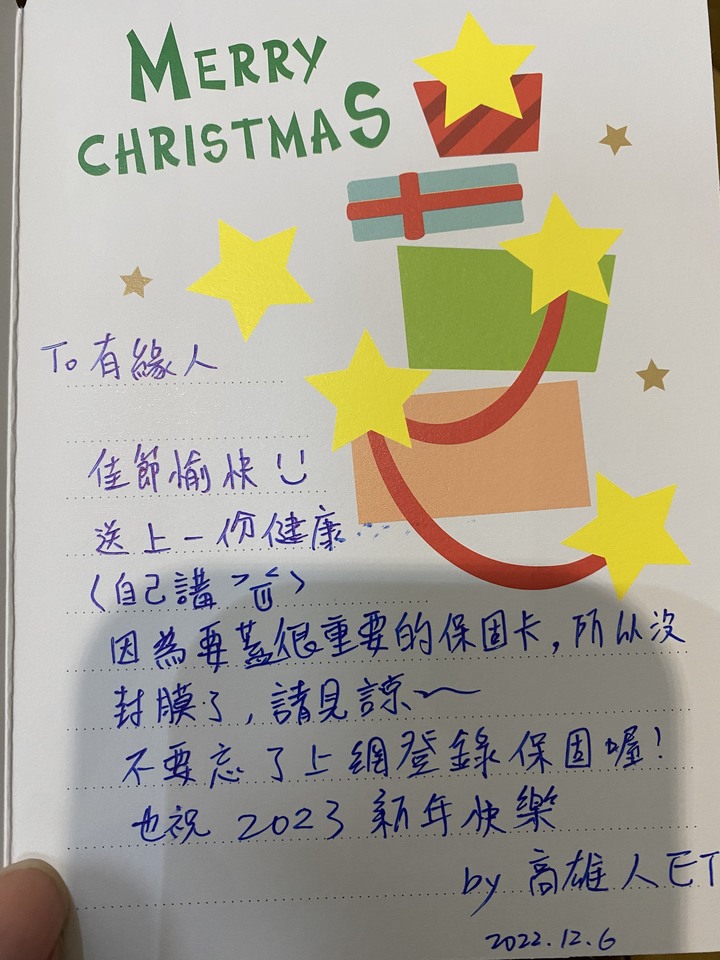 MERRY
CHRISTMAS
To 有緣人
佳節愉快
送上一份健康...
(自己講)
因為要蓋很重要的保固卡,所以沒
封膜了,請見諒~
不要忘了上網登錄保固喔!
也祝 2023 新年快樂
by 高雄人ET
2022.12.6